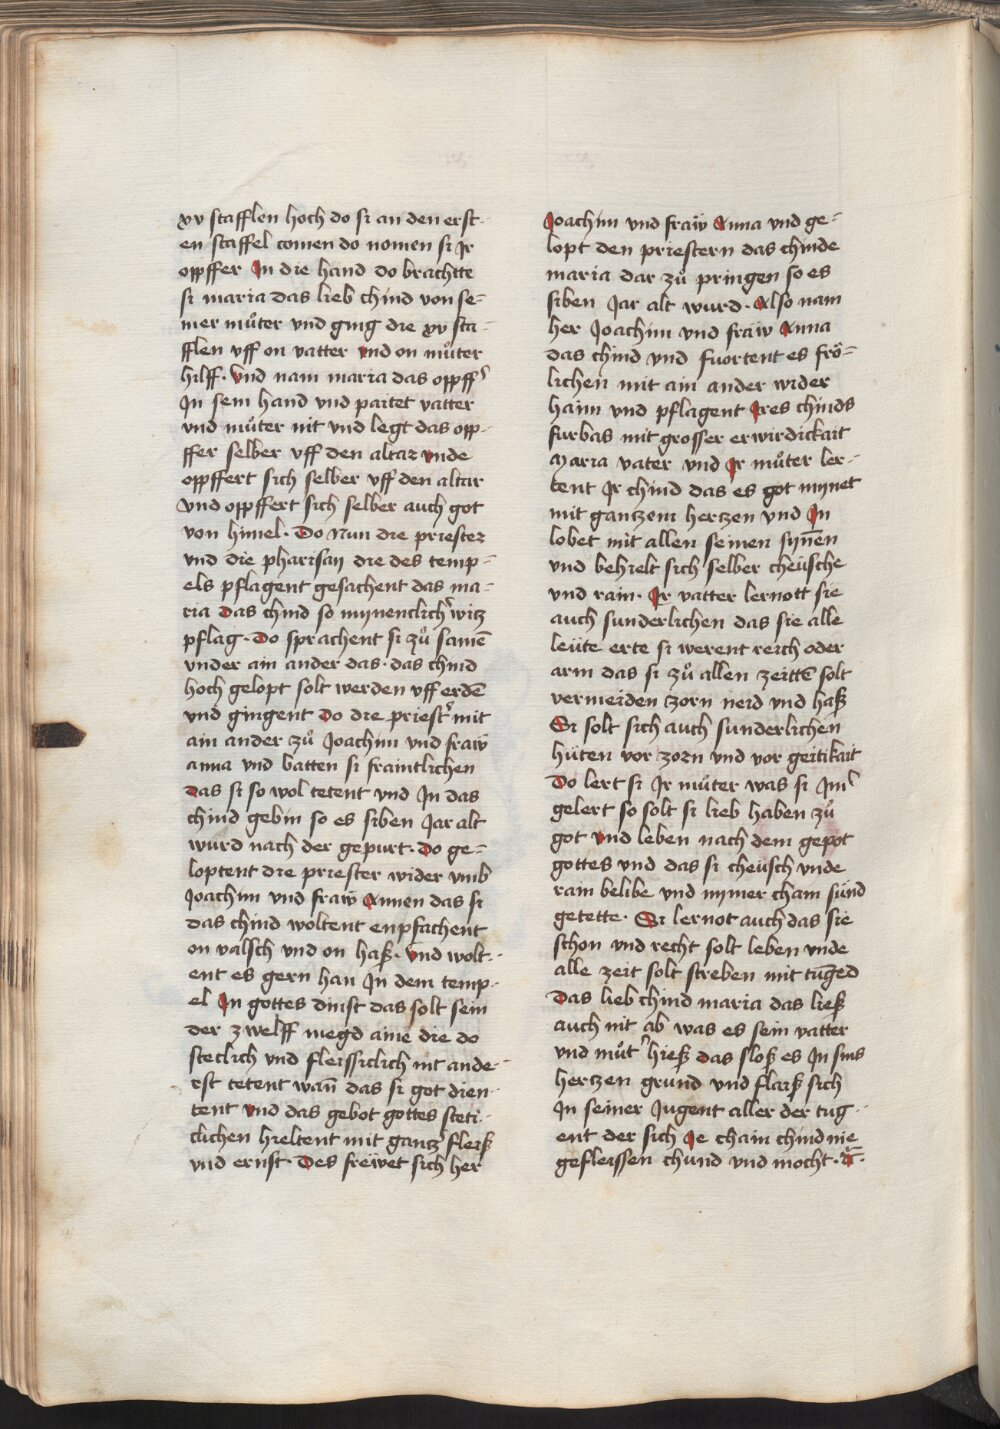 xv stafflen hoch do si an den erst-
en staffel comen do nomen si Ir
opffer In die hand do brachtte
si maria das lieb chind von se-
iner muͦter vnd ging die xv sta-
fflen vff on vatter vnd on muͦter
hilff. vnd nam maria das opffʾ
In sein hand vnd paitet vatter
vnd muͦter nit vnd legt das opp-
ffer selber vff den altar vnde
oppffert sich selber vff den altar
vnd oppffert sich selber auch got
von himel. Do Nun die priester
vnd die pharisay die des temp-
els pflagent gesachent das ma-
ria das chind so mynenclichʾ witz
pflag. Do sprachent si zuͦ samē
vnder ain ander das. das chind
hoch gelopt solt werden vff erdē
vnd gingent do die priestʾ mit
ain ander zuͦ Joachim vnd fraẅ
anna vnd batten si fraintlichen
das si so wol tetent vnd In das
chind gebin so es siben Jar alt
wurd nach der gepurt. Do ge-
loptent die priester wider vmb
Joachim vnd fraẅ Annen das si
das chind woltent enpfachent
on valsch vnd on haß. vnd wolt-
ent es gern han In dem temp-
el In gottes dinst das solt sein
der zwelff megd aine die do
steclich vnd fleissiclich nit ande-
rst tetent wan̄ das si got dien-
tent vnd das gebot gottes steti-
clichen hieltent mit gantzʾ fleiß
vnd ernst. Des frewet sich her
Joachim vnd fraẅ Anna vnd ge-
lopt den priestern das chinde
maria dar zuͦ pringen so es
siben Jar alt wurd. Also nam
her Joachim vnd fraẅ Anna
das chind vnd fuortent es frö-
lichen mit ain ander wider
haim vnd pflagent Ires chinds
furbas mit grosser erwirdickait
Maria vater vnd Ir muͦter ler-
tent Ir chind das es got mynet
mit gantzem hertzen vnd In
lobet mit allen seinen syn̄en
vnd behielt sich selber cheüsche
vnd rain. Ir vatter lernott sie
auch sunderlichen das sie alle
leüte erte si werent reich oder
arm das si zuͦ allen zeittē solt
vermeiden zorn neid vnd haß
Si solt sich auch sunderlichen
hüten vor zorn vnd vor geitikait
Do lert si Ir muͦter was si Imʾ
gelert so solt si lieb haben zuͦ
got vnd leben nach dem gepot
gottes vnd das si cheüsch vnde
rain belibe vnd nymer cham sünd
getette. Si lernot auch das sie
schon vnd recht solt leben vnde
alle zeit solt streben mit tuḡed
Das lieb chind maria das ließ
auch nit ab was es sein vatter
vnd muͦtʾ hieß das sloß es In sins
hertzen grund vnd flaiß sich
In seiner Jugent aller der tug-
ent der sich Ie chain chind nie
gefleissen chund vnd mocht.